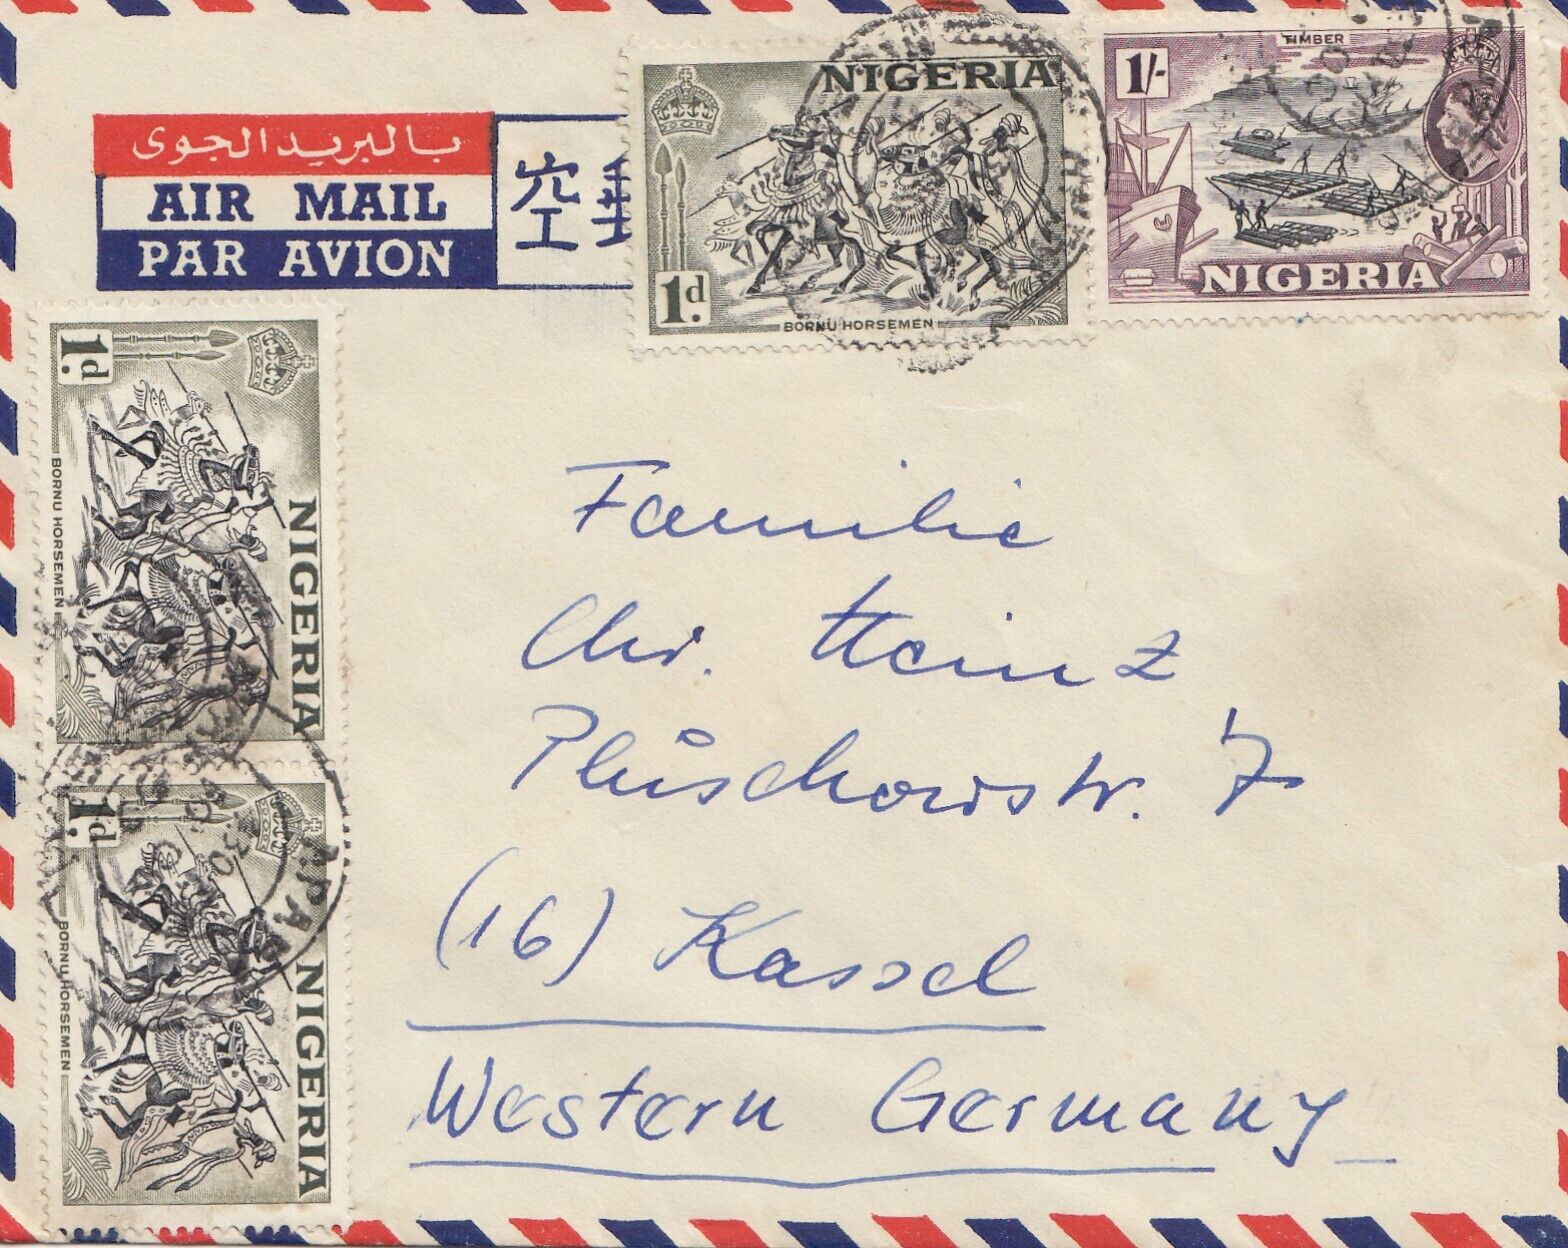 بالبريد الجوى
AIR MAIL
PAR AVION
空
NIGERIA
1d.
BORNU HORSEMEN
TIMBER
1/-
NIGERIA
1d.
BORNU HORSEMEN
NIGERIA
1d.
BORNU HORSEMEN
NIGERIA
APAPA
Familie
Chr. Heinz
Plüschowstr. 7
(16) Kassel
Western Germany